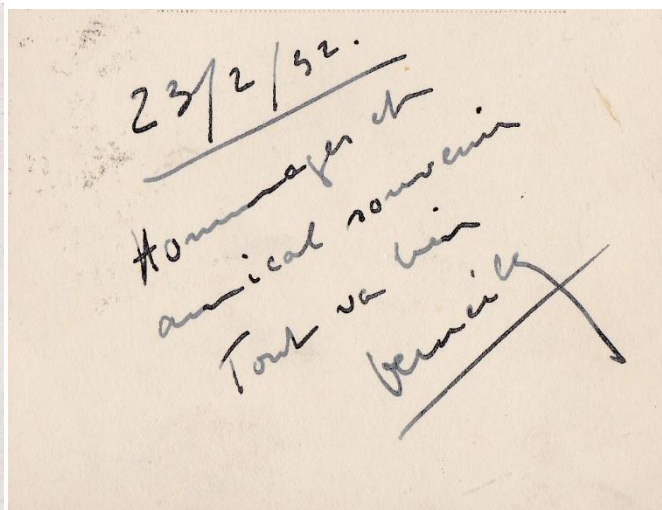 23/2/52.
Hommages et
amical souvenir
Tout va bien